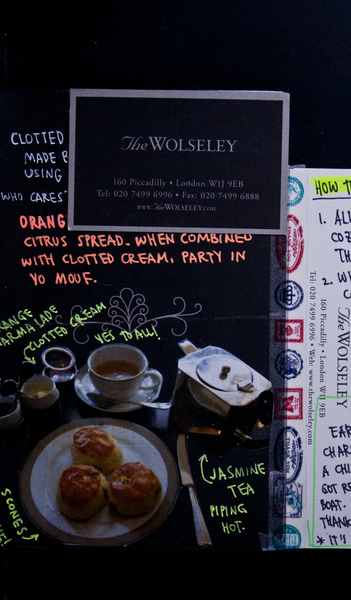 The WOLSELEY
160 Piccadilly • London W1J 9EB
Tel: 020 7499 6996 • Fax: 020 7499 6888
www.TheWOLSELEY.com
CLOTTED
MADE
USING
WHO CARES
ORANG
CITRUS SPREAD. WHEN COMBINED
WITH CLOTTED CREAM, PARTY IN
YO MOUF.
MARMALADE
CLOTTED CREAM
YES TO ALL!
JASMINE
TEA
PIPING
HOT.
SCONES
HOW
1.
2.
The WOLSELEY
160 Piccadilly • London W1J 9EB
Tel: 020 7499 6996 • Web: www.thewolseley.com
A
GOT
BOAT.
THANK
* IT'S
THANK YOU